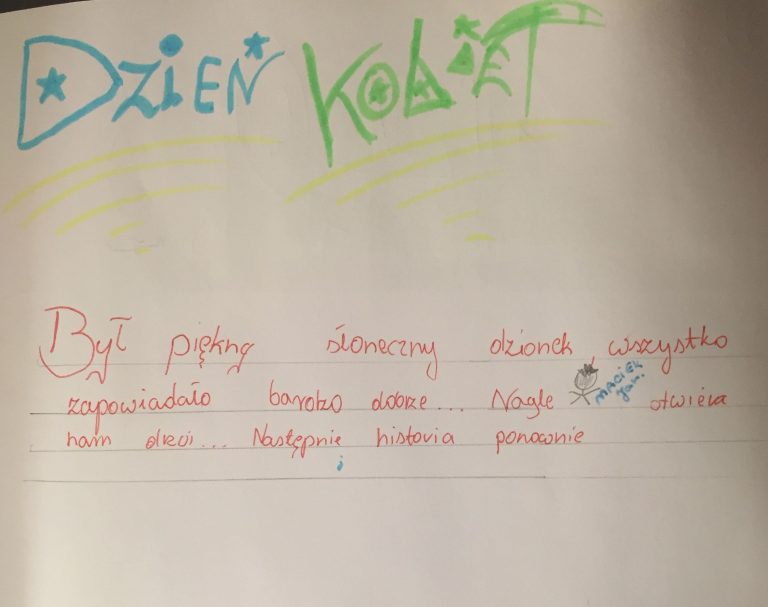 DZIEŃ KOBIET
Był piękny słoneczny dzionek wszystko
zapowiadało bardzo dobrze... Nagle MACIEK otwiera
nam drzwi... Następnie historia ponownie